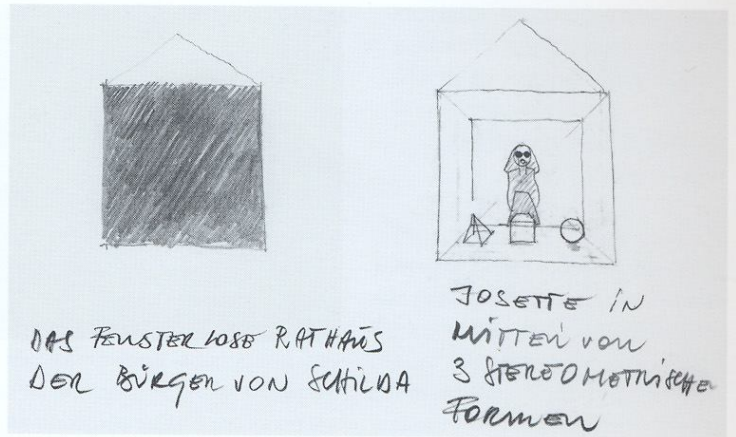 DAS FENSTERLOSE RATHAUS
DER BÜRGER VON SCHILDA
JOSETTE IN
MITTEN VON
3 STEREOMETRISCHE
FORMEN